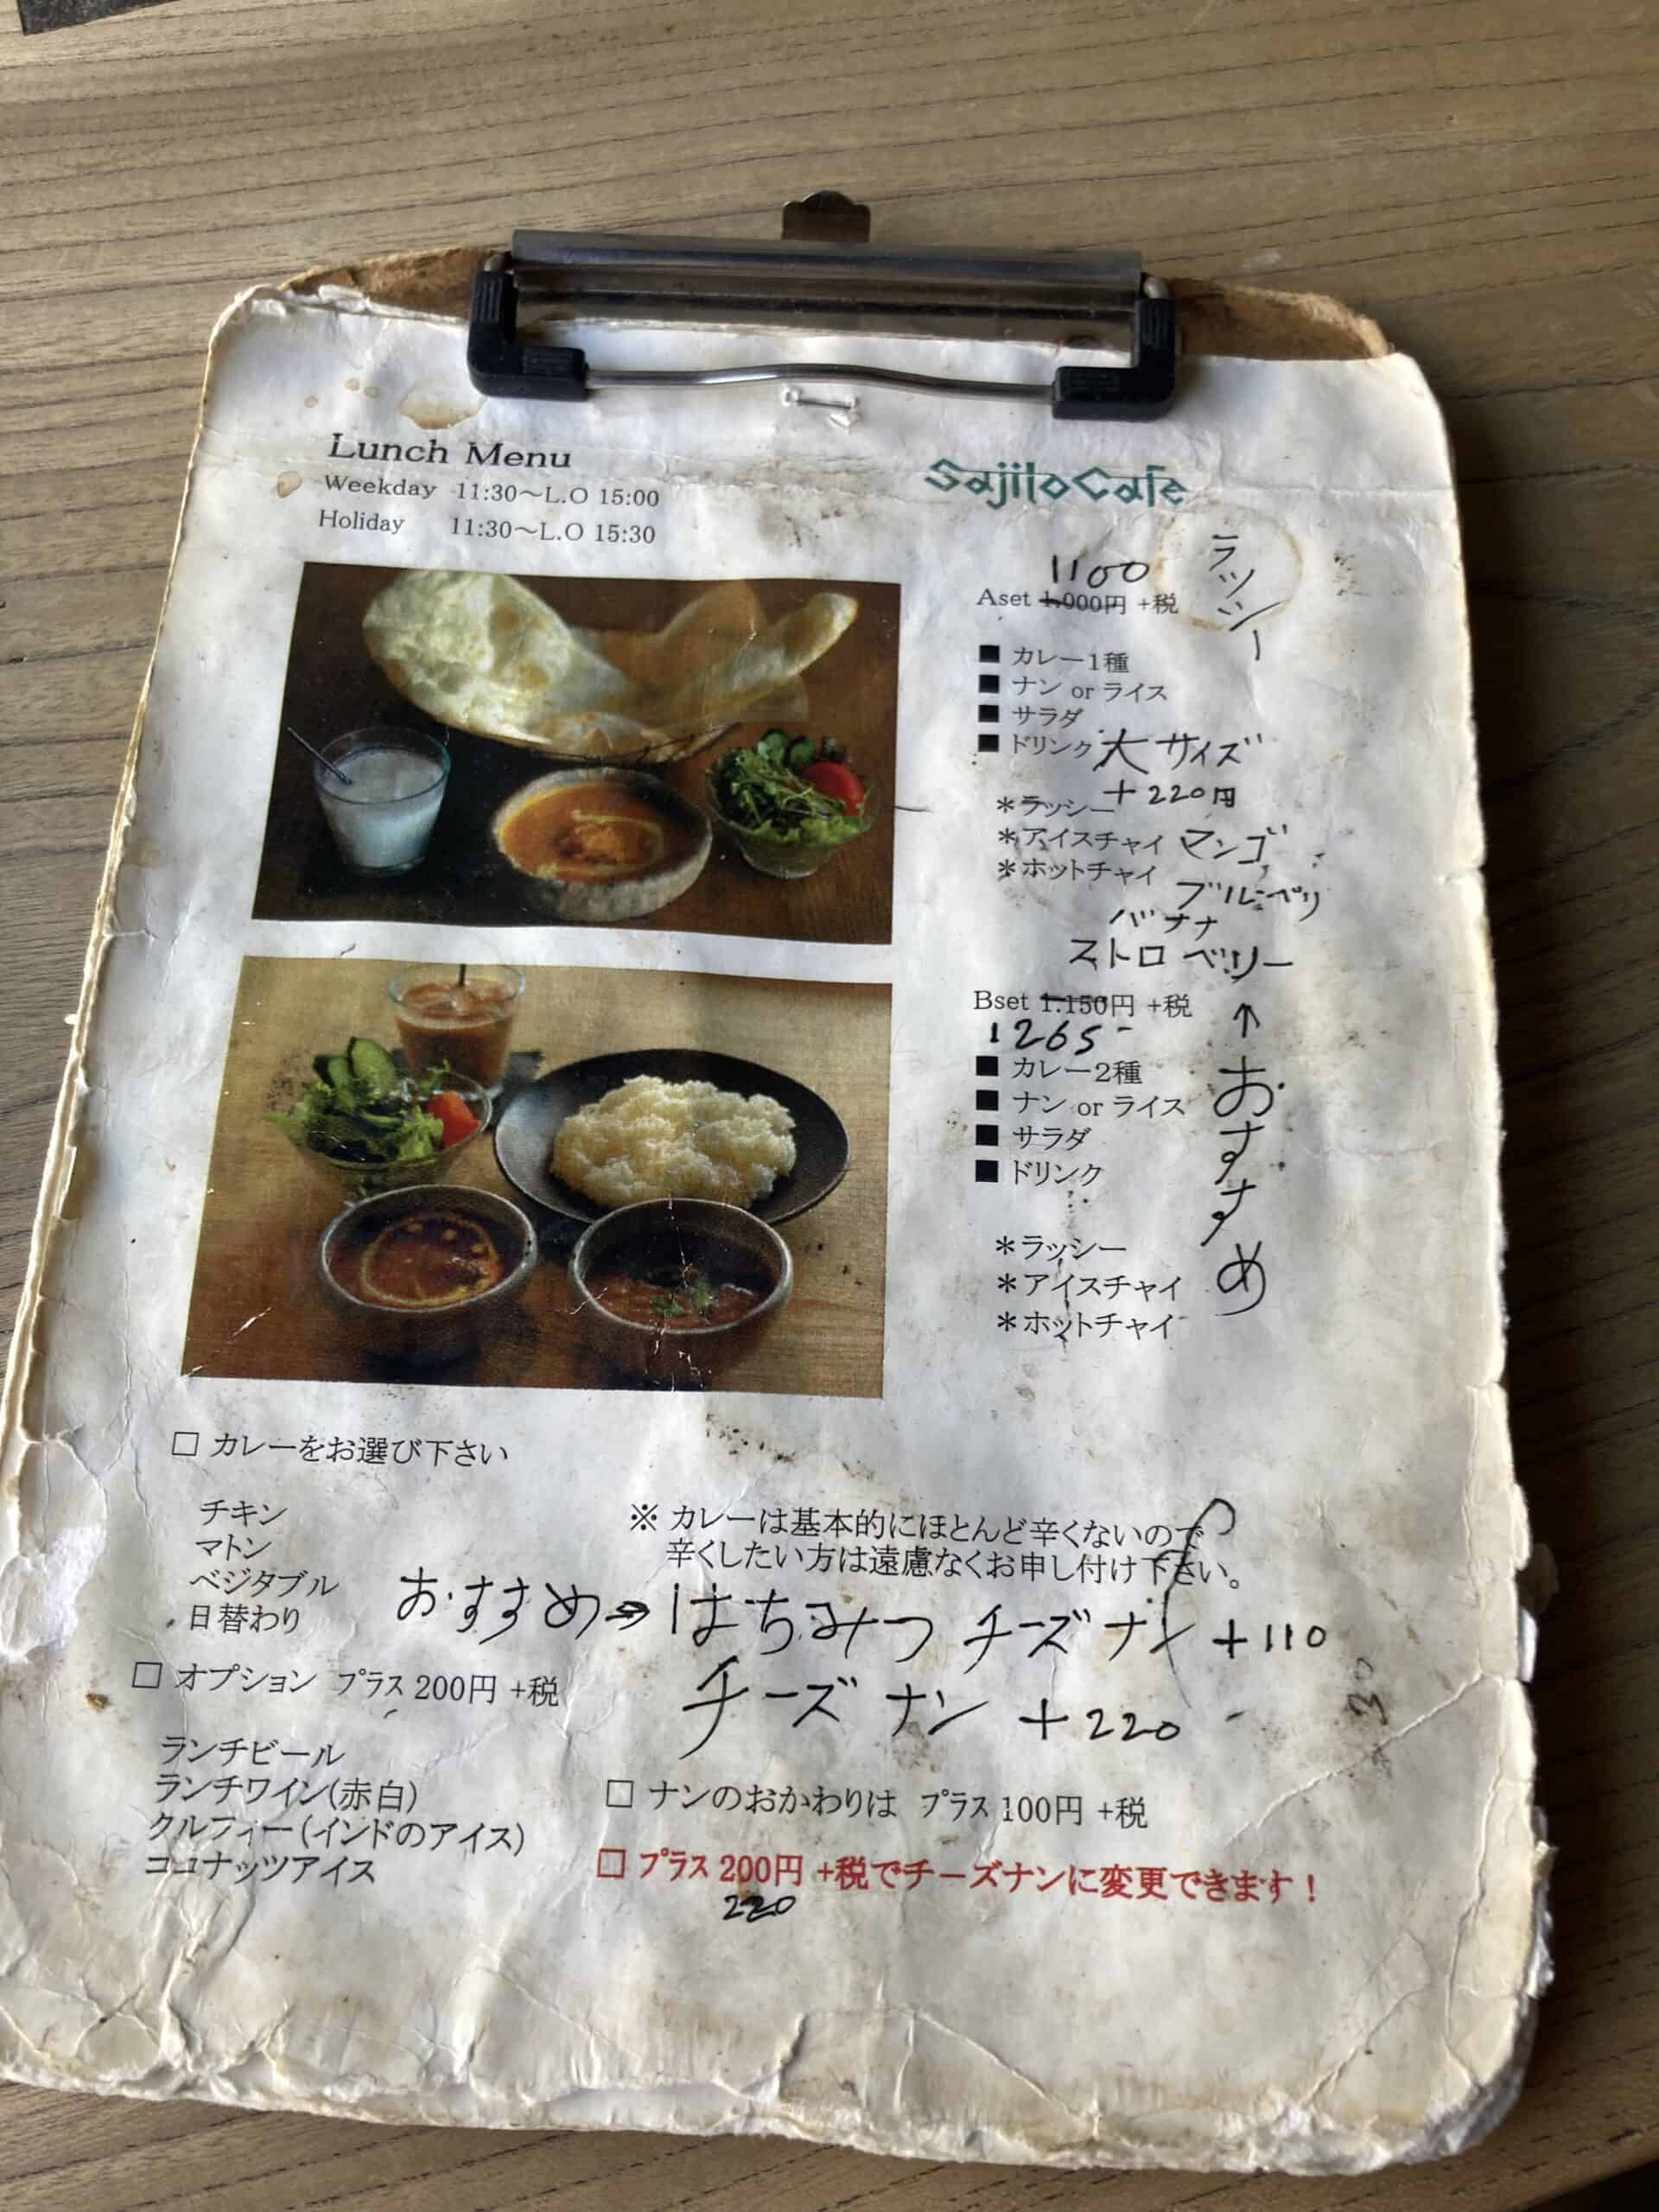 Lunch Menu
Weekday 11:30～L.O 15:00
Holiday 11:30～L.O 15:30
Sajilo Cafe
ラッシー
1100
Aset 1.000円 +税
■ カレー1種
■ ナン or ライス
■ サラダ
■ ドリンク 大サイズ
+220円
＊ラッシー
＊アイスチャイ マンゴ
＊ホットチャイ
ブルーベリ
バナナ
ストロベリー
↑
おすすめ
Bset 1.150円 +税
1265-
■ カレー2種
■ ナン or ライス
■ サラダ
■ ドリンク
＊ラッシー
＊アイスチャイ
＊ホットチャイ
□ カレーをお選び下さい
チキン
マトン
ベジタブル
日替わり
※ カレーは基本的にほとんど辛くないので
辛くしたい方は遠慮なくお申し付け下さい。
おすすめ→はちみつ チーズナン +110
チーズ ナン +220
□ オプション プラス 200円 +税
ランチビール
ランチワイン(赤白)
クルフィー(インドのアイス)
ココナッツアイス
□ ナンのおかわりは プラス 100円 +税
□ プラス 200円 +税でチーズナンに変更できます！
220